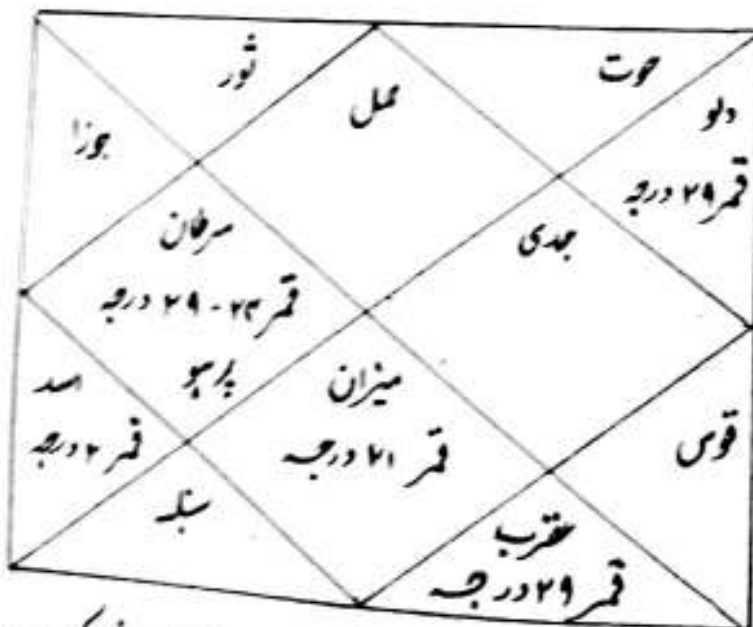 ثور
حوت
حمل
دلو
قمر ۲۹ درجہ
جوزا
سرطان
قمر ۲۳ - ۲۹ درجہ
پر ہو
جدی
اسد
قمر ۲ درجہ
میزان
قمر ۲۱ درجہ
قوس
سنبلہ
عقرب
قمر ۲۹ درجہ